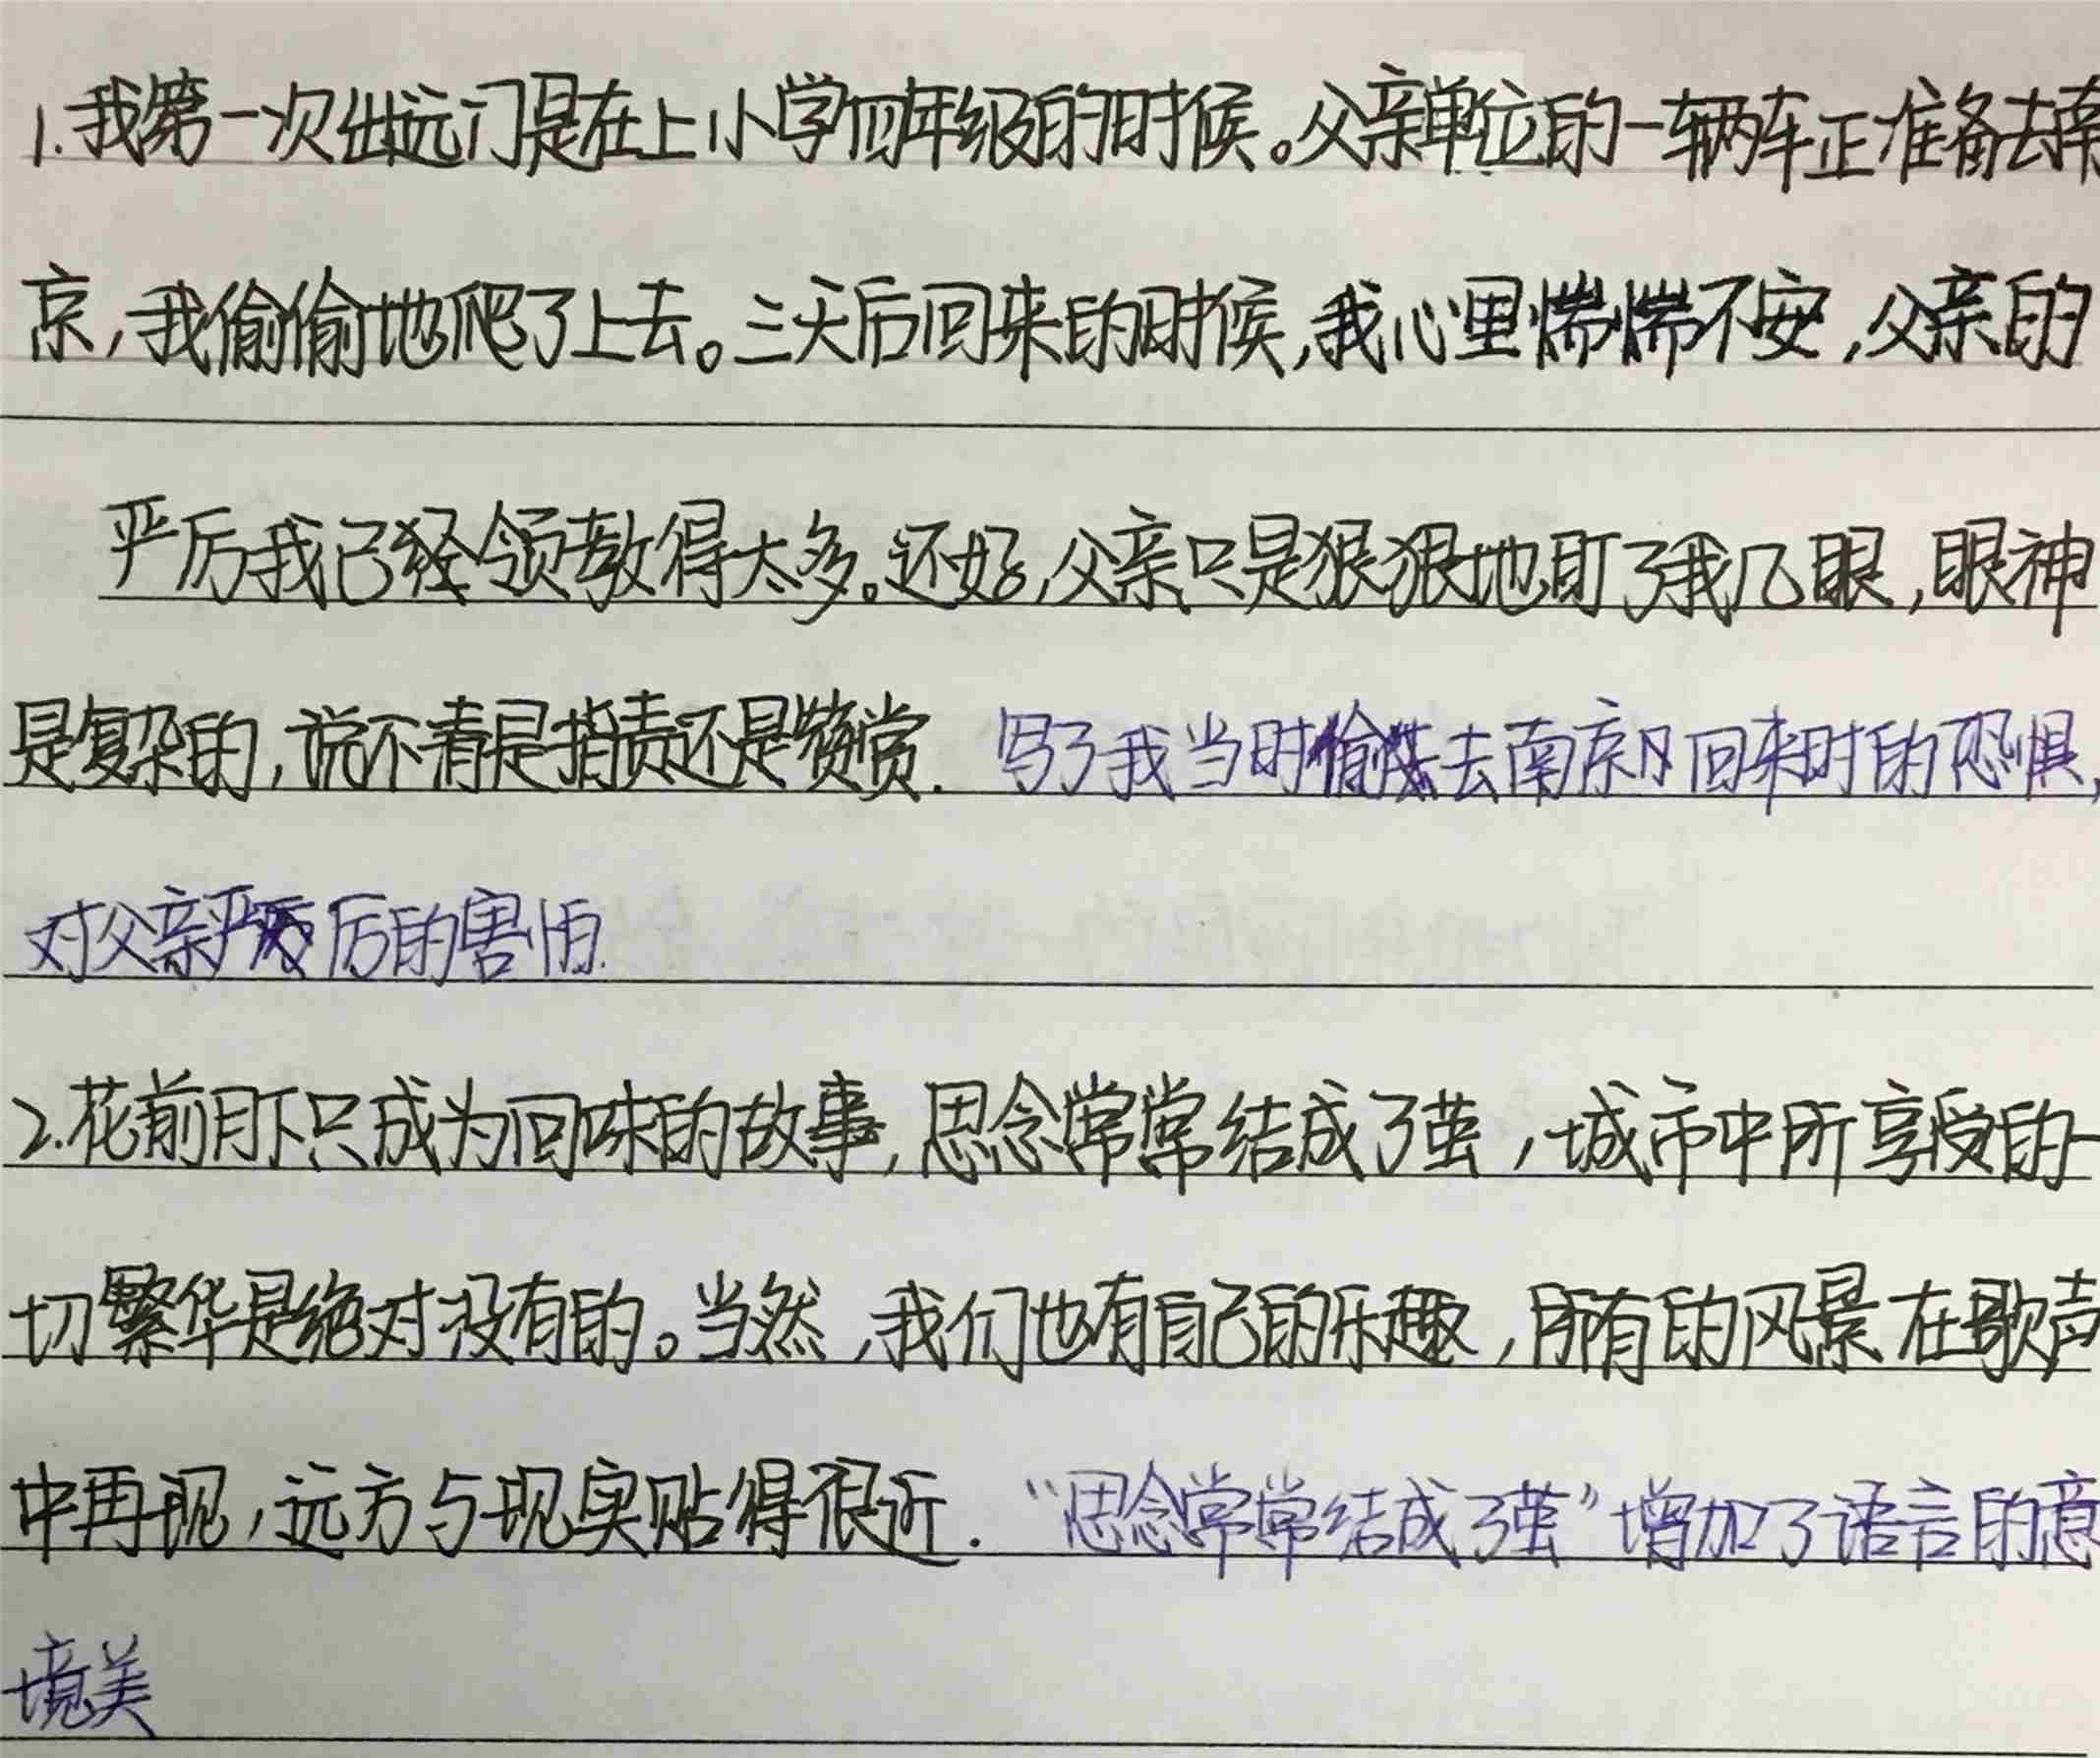 1.我第一次出远门是在上小学四年级的时候。父亲单位的一辆车正准备去南
京,我偷偷地爬了上去。三天后回来的时候,我心里惴惴不安,父亲的
严厉我已经领教得太多。还好,父亲只是狠狠地盯了我几眼,眼神
是复杂的,说不清是指责还是赞赏.写了我当时偷去南京回来时的恐惧,
对父亲严厉的害怕.
2.花前月下只成为回味的故事,思念常常结成了茧,城市中所享受的一
切繁华是绝对没有的。当然,我们也有自己的乐趣,所有的风景在歌声
中再现,远方与现实贴得很近.“思念常常结成了茧”增加了语言的意
境美